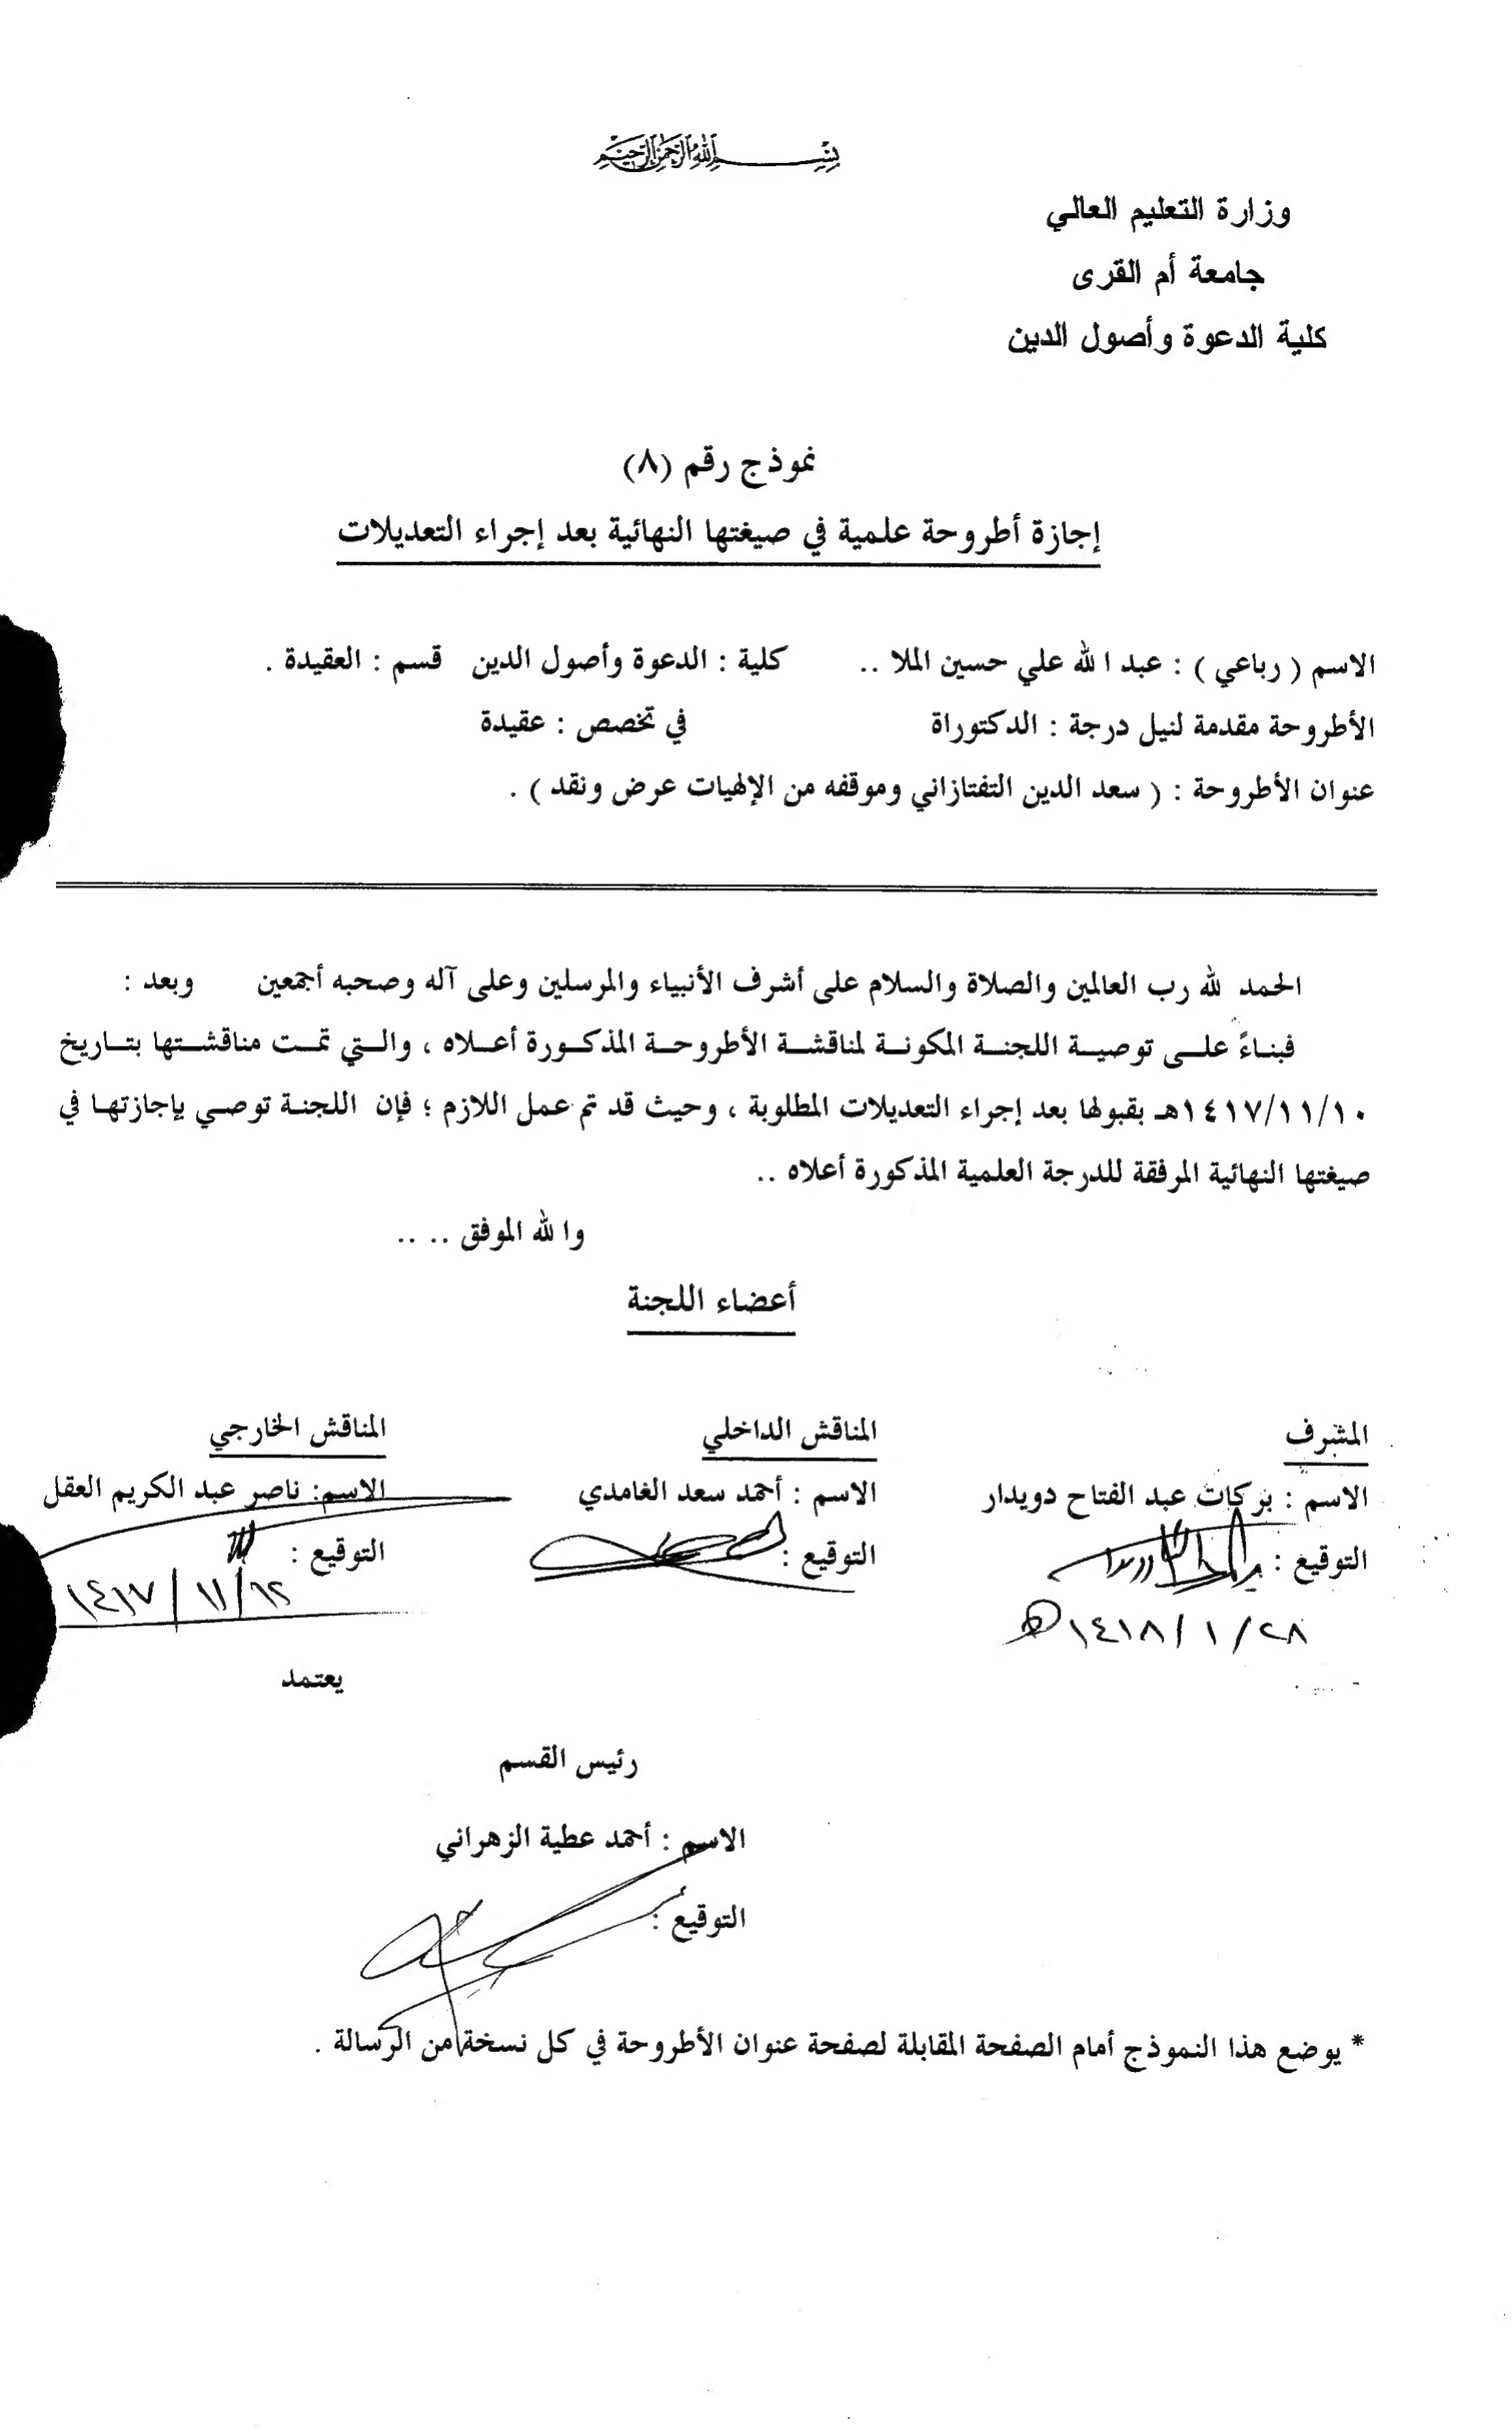 بسم الله الرحمن الرحيم
وزارة التعليم العالي
جامعة أم القرى
كلية الدعوة وأصول الدين
نموذج رقم (٨)
إجازة أطروحة علمية في صيغتها النهائية بعد إجراء التعديلات
الاسم ( رباعي ) : عبد الله علي حسين الملا .. كلية : الدعوة وأصول الدين قسم : العقيدة .
الأطروحة مقدمة لنيل درجة : الدكتوراة في تخصص : عقيدة
عنوان الأطروحة : ( سعد الدين التفتازاني وموقفه من الإلهيات عرض ونقد ) .
الحمد لله رب العالمين والصلاة والسلام على أشرف الأنبياء والمرسلين وعلى آله وصحبه أجمعين وبعد :
فبناءً على توصية اللجنة المكونة لمناقشة الأطروحة المذكورة أعلاه ، والتي تمت مناقشتها بتاريخ
١٤١٧/١١/١٠هـ بقبولها بعد إجراء التعديلات المطلوبة ، وحيث قد تم عمل اللازم ؛ فإن اللجنة توصي بإجازتها في
صيغتها النهائية المرفقة للدرجة العلمية المذكورة أعلاه ..
والله الموفق .. ..
أعضاء اللجنة
المشرف المناقش الداخلي المناقش الخارجي
الاسم : بركات عبد الفتاح دويدار الاسم : أحمد سعد الغامدي الاسم : ناصر عبد الكريم العقل
التوقيع : التوقيع : التوقيع :
١٤١٨/١/٢٨هـ
يعتمد
رئيس القسم
الاسم : أحمد عطية الزهراني
التوقيع :
* يوضع هذا النموذج أمام الصفحة المقابلة لصفحة عنوان الأطروحة في كل نسخة من الرسالة .